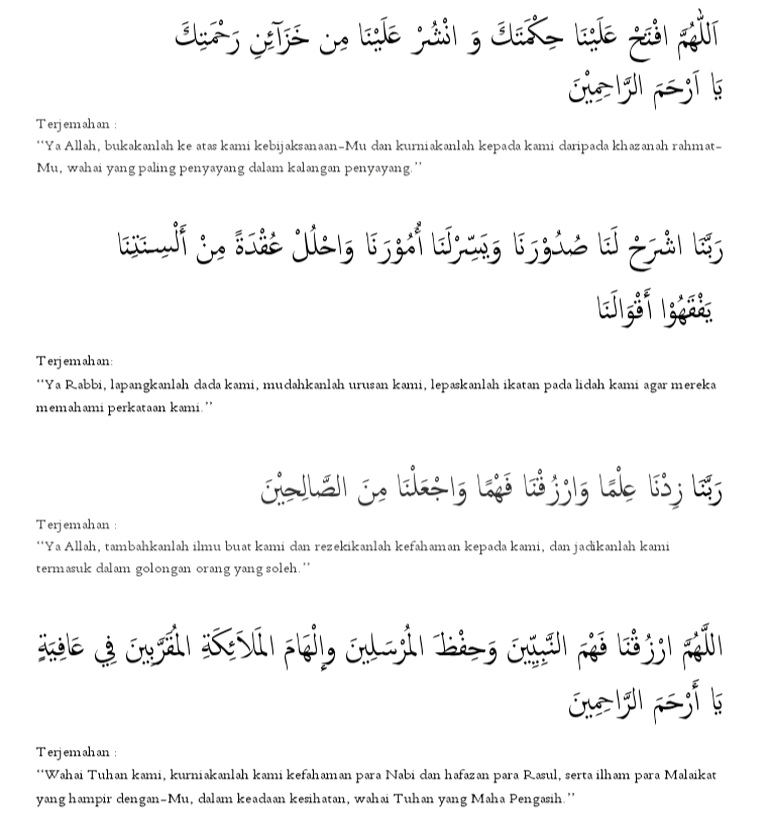 اَللّٰهُمَّ افْتَحْ عَلَيْنَا حِكْمَتَكَ وَ انْشُرْ عَلَيْنَا مِن خَزَآئِنِ رَحْمَتِكَ
يَا اَرْحَمَ الرَّاحِمِيْنَ
Terjemahan :
“Ya Allah, bukakanlah ke atas kami kebijaksanaan-Mu dan kurniakanlah kepada kami daripada khazanah rahmat-
Mu, wahai yang paling penyayang dalam kalangan penyayang.”
رَبَّنَا اشْرَحْ لَنَا صُدُوْرَنَا وَيَسِّرْلَنَا أُمُوْرَنَا وَاحْلُلْ عُقْدَةً مِنْ أَلْسِنَتِنَا
يَفْقَهُوْا أَقْوَالَنَا
Terjemahan:
“Ya Rabbi, lapangkanlah dada kami, mudahkanlah urusan kami, lepaskanlah ikatan pada lidah kami agar mereka
memahami perkataan kami.”
رَبَّنَا زِدْنَا عِلْمًا وَارْزُقْنَا فَهْمًا وَاجْعَلْنَا مِنَ الصَّالِحِيْنَ
Terjemahan :
“Ya Allah, tambahkanlah ilmu buat kami dan rezekikanlah kefahaman kepada kami, dan jadikanlah kami
termasuk dalam golongan orang yang soleh.”
اللَّهُمَّ ارْزُقْنَا فَهْمَ النَّبِيِّينَ وَحِفْظَ المُرْسَلِينَ وإِلْهَامَ المَلاَئِكَةِ المُقَرَّبِينَ فِي عَافِيَةٍ
يَا أَرْحَمَ الرَّاحِمِينَ
Terjemahan :
“Wahai Tuhan kami, kurniakanlah kami kefahaman para Nabi dan hafazan para Rasul, serta ilham para Malaikat
yang hampir dengan-Mu, dalam keadaan kesihatan, wahai Tuhan yang Maha Pengasih.”